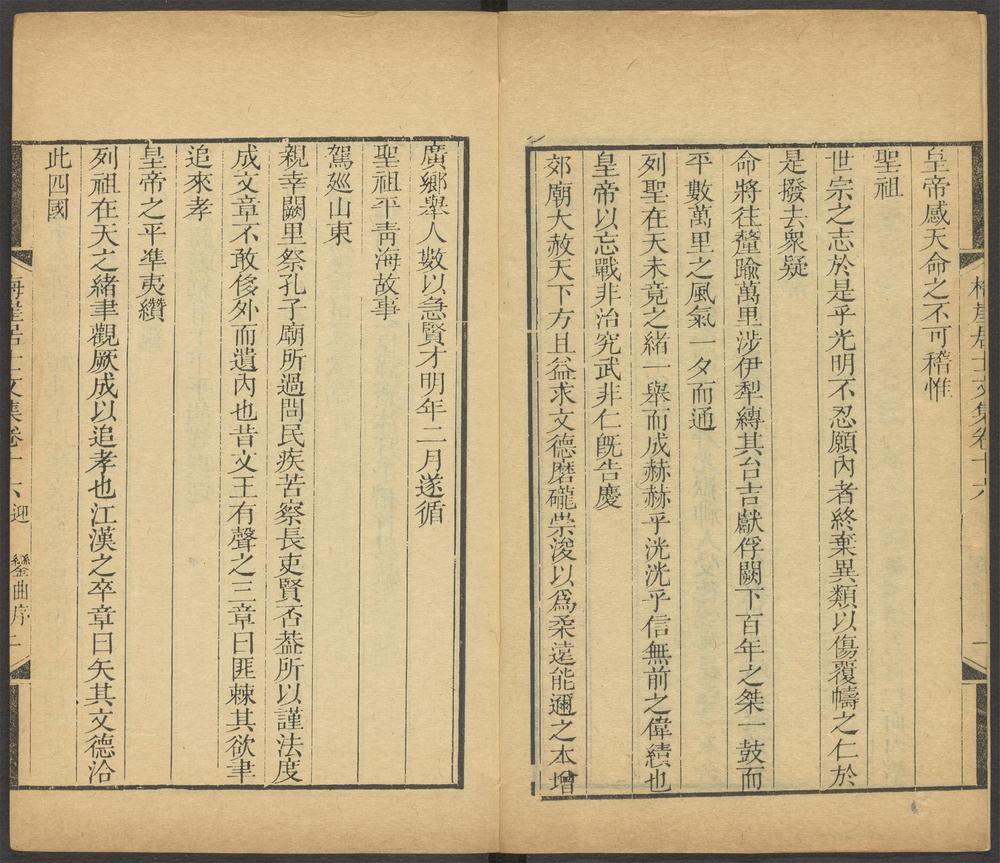 皇帝感天命之不可稽惟
聖祖
世宗之志於是乎光明不忍願內者終棄異類以傷覆幬之仁於
是撥去衆疑
命將往釐踰萬里涉伊犁縛其台吉獻俘闕下百年之桀一鼓而
平數萬里之風氣一夕而通
列聖在天未竟之緒一舉而成赫赫乎洸洸乎信無前之偉績也
皇帝以忘戰非治究武非仁旣告慶
郊廟大赦天下方且益求文德磨礲崇浚以爲柔遠能邇之本增
廣鄉舉人數以急賢才明年二月遂循
聖祖平靑海故事
駕廵山東
親幸闕里祭孔子廟所過問民疾苦察長吏賢否葢所以謹法度
成文章不敢侈外而遺內也昔文王有聲之三章曰匪棘其欲聿
追來孝
皇帝之平準夷纘
列祖在天之緒聿觀厥成以追孝也江漢之卒章曰矢其文德洽
此四國
梅崖居士文集卷十六 迎 鑾曲序 二